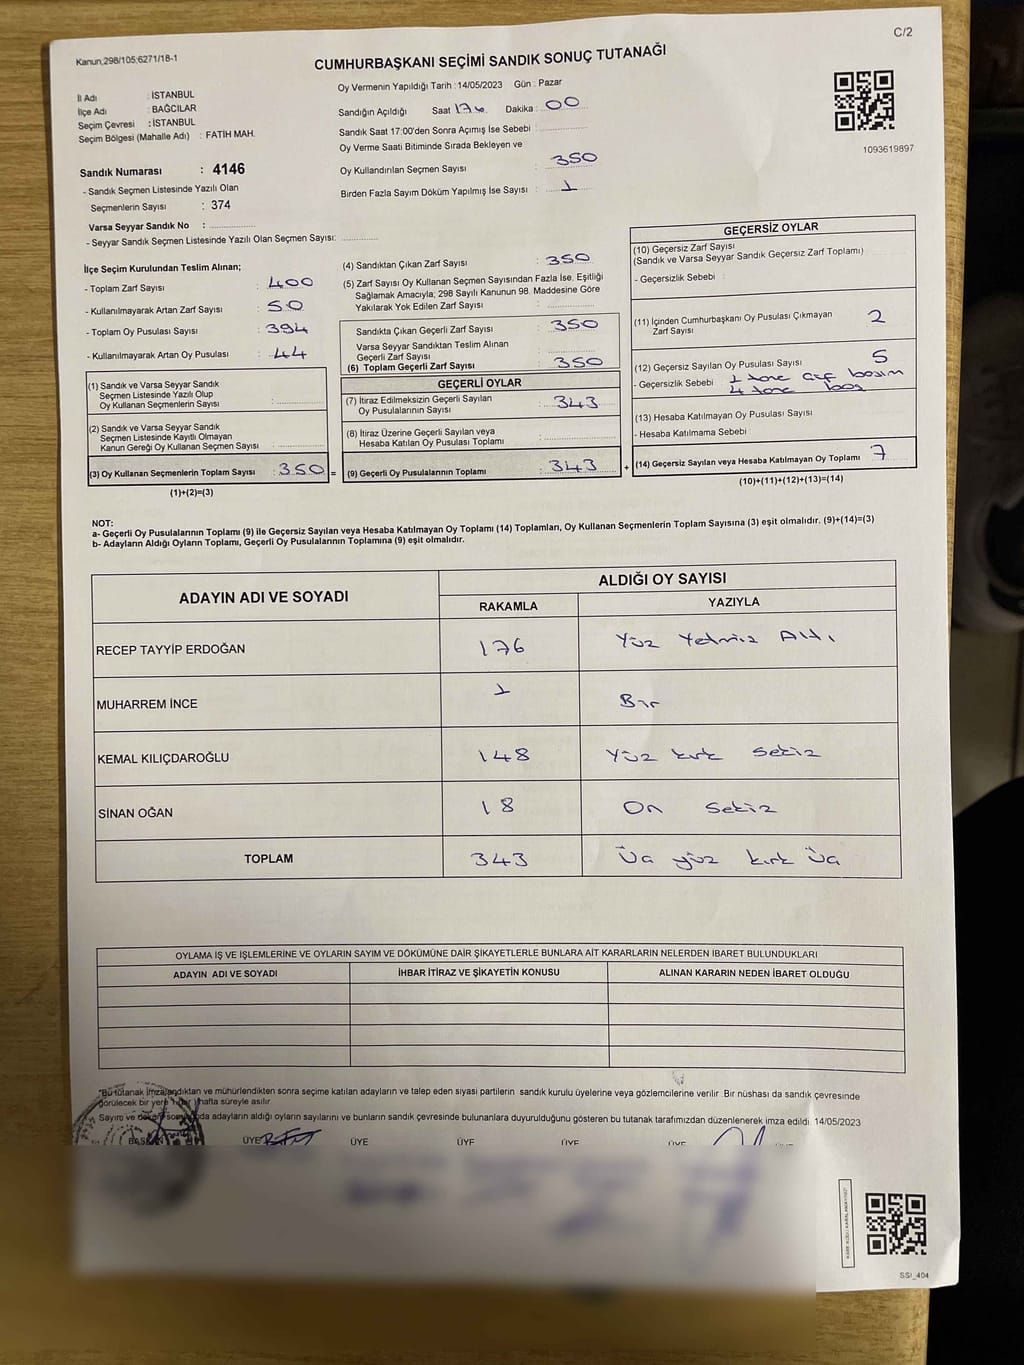 C/2
Kanun,298/105;6271/18-1
CUMHURBAŞKANI SEÇİMİ SANDIK SONUÇ TUTANAĞI
İl Adı : İSTANBUL
İlçe Adı : BAĞCILAR
Seçim Çevresi : İSTANBUL
Seçim Bölgesi (Mahalle Adı) : FATİH MAH.
Oy Vermenin Yapıldığı Tarih : 14/05/2023 Gün : Pazar
Sandığın Açıldığı Saat 17:00 Dakika : 00
Sandık Saat 17:00'den Sonra Açımış İse Sebebi :
Oy Verme Saati Bitiminde Sırada Bekleyen ve
Oy Kullandırılan Seçmen Sayısı : 350
Birden Fazla Sayım Döküm Yapılmış İse Sayısı : 1
1093619897
Sandık Numarası : 4146
- Sandık Seçmen Listesinde Yazılı Olan
Seçmenlerin Sayısı : 374
Varsa Seyyar Sandık No :
- Seyyar Sandık Seçmen Listesinde Yazılı Olan Seçmen Sayısı:
İlçe Seçim Kurulundan Teslim Alınan;
- Toplam Zarf Sayısı : 400
- Kullanılmayarak Artan Zarf Sayısı : 50
- Toplam Oy Pusulası Sayısı : 394
- Kullanılmayarak Artan Oy Pusulası : 44
(1) Sandık ve Varsa Seyyar Sandık
Seçmen Listesinde Yazılı Olup
Oy Kullanan Seçmenlerin Sayısı :
(2) Sandık ve Varsa Seyyar Sandık
Seçmen Listesinde Kayıtlı Olmayan
Kanun Gereği Oy Kullanan Seçmen Sayısı :
(3) Oy Kullanan Seçmenlerin Toplam Sayısı : 350 =
(1)+(2)=(3)
(4) Sandıktan Çıkan Zarf Sayısı : 350
(5) Zarf Sayısı Oy Kullanan Seçmen Sayısından Fazla İse, Eşitliği
Sağlamak Amacıyla; 298 Sayılı Kanunun 98. Maddesine Göre
Yakılarak Yok Edilen Zarf Sayısı :
Sandıkta Çıkan Geçerli Zarf Sayısı : 350
Varsa Seyyar Sandıktan Teslim Alınan
Geçerli Zarf Sayısı :
(6) Toplam Geçerli Zarf Sayısı : 350
GEÇERLİ OYLAR
(7) İtiraz Edilmeksizin Geçerli Sayılan
Oy Pusulalarının Sayısı : 343
(8) İtiraz Üzerine Geçerli Sayılan veya
Hesaba Katılan Oy Pusulası Toplamı :
(9) Geçerli Oy Pusulalarının Toplamı : 343 +
GEÇERSİZ OYLAR
(10) Geçersiz Zarf Sayısı
(Sandık ve Varsa Seyyar Sandık Geçersiz Zarf Toplamı)
- Geçersizlik Sebebi :
(11) İçinden Cumhurbaşkanı Oy Pusulası Çıkmayan
Zarf Sayısı 2
(12) Geçersiz Sayılan Oy Pusulası Sayısı 5
- Geçersizlik Sebebi : 1 tane
4 tane boş
(13) Hesaba Katılmayan Oy Pusulası Sayısı
- Hesaba Katılmama Sebebi :
(14) Geçersiz Sayılan veya Hesaba Katılmayan Oy Toplamı 7
(10)+(11)+(12)+(13)=(14)
NOT:
a- Geçerli Oy Pusulalarının Toplamı (9) ile Geçersiz Sayılan veya Hesaba Katılmayan Oy Toplamı (14) Toplamları, Oy Kullanan Seçmenlerin Toplam Sayısına (3) eşit olmalıdır. (9)+(14)=(3)
b- Adayların Aldığı Oyların Toplamı, Geçerli Oy Pusulalarının Toplamına (9) eşit olmalıdır.
ADAYIN ADI VE SOYADI ALDIĞI OY SAYISI
RAKAMLA YAZIYLA
RECEP TAYYİP ERDOĞAN 176 Yüz Yetmiş Altı
MUHARREM İNCE 1 Bir
KEMAL KILIÇDAROĞLU 148 Yüz kırk sekiz
SİNAN OĞAN 18 On sekiz
TOPLAM 343 Üç yüz kırk üç
OYLAMA İŞ VE İŞLEMLERİNE VE OYLARIN SAYIM VE DÖKÜMÜNE DAİR ŞİKAYETLERLE BUNLARA AİT KARARLARIN NELERDEN İBARET BULUNDUKLARI
ADAYIN ADI VE SOYADI İHBAR İTİRAZ VE ŞİKAYETİN KONUSU ALINAN KARARIN NEDEN İBARET OLDUĞU
"Bu tutanak imzalandıktan ve mühürlendikten sonra seçime katılan adayların ve talep eden siyasi partilerin sandık kurulu üyelerine veya gözlemcilerine verilir. Bir nüshası da sandık çevresinde
görülecek bir yere 1 hafta süreyle asılır.
Sayım ve döküm sonunda adayların aldığı oyların sayılarını ve bunların sandık çevresinde bulunanlara duyurulduğunu gösteren bu tutanak tarafımızdan düzenlenerek imza edildi. 14/05/2023
BAŞKAN ÜYE ÜYE ÜYE ÜYE ÜYE
SSI_404